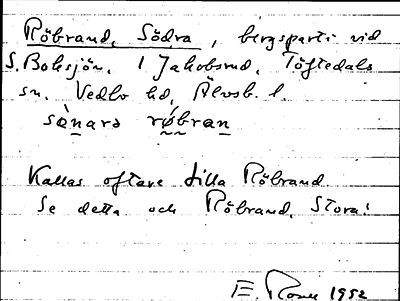 Röbrand, Södra, bergsparti vid
S. Boksjön, i Jakobsrud, Töftedals
sn. Vedbo hd, Älvsb. l.
sø̀narə røbran
Kallas oftare Lilla Röbrand
Se detta och Röbrand, Stora!
E. Rosell 1952